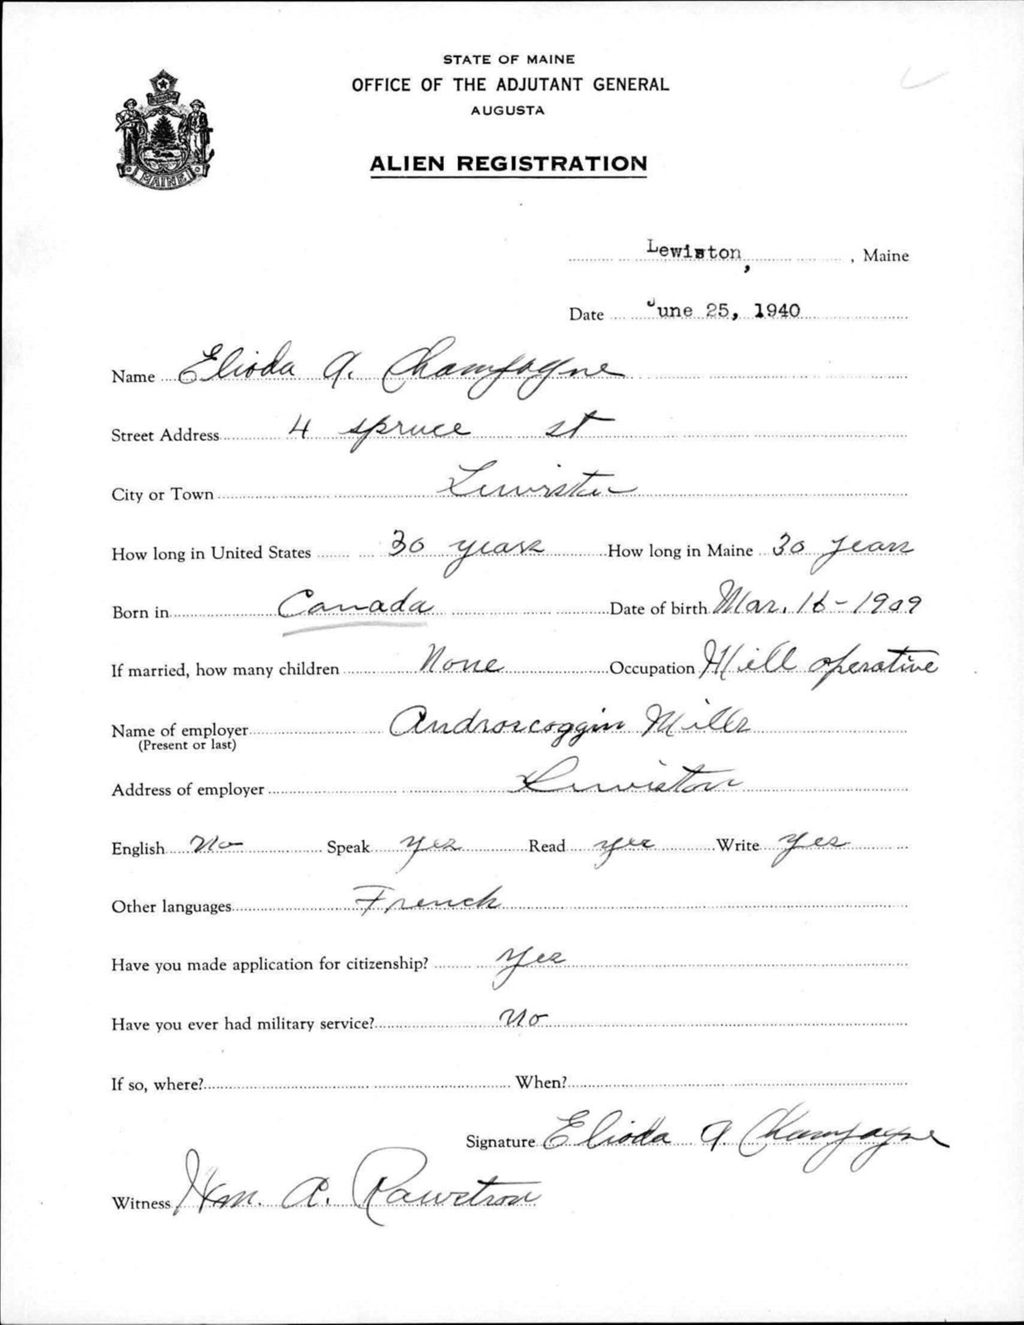 STATE OF MAINE
OFFICE OF THE ADJUTANT GENERAL
AUGUSTA
ALIEN REGISTRATION
MAINE
Lewiston, , Maine
Date June 25, 1940
Name Elioda A. Champagne
Street Address 4 spruce st
City or Town Lewiston
How long in United States 30 years How long in Maine 30 years
Born in Canada Date of birth Mar. 16 - 1909
If married, how many children None Occupation Mill operative
Name of employer Androscoggin Mills
(Present or last)
Address of employer Lewiston
English No Speak Yes Read yes Write Yes
Other languages French
Have you made application for citizenship? Yes
Have you ever had military service? No
If so, where? When?
Signature Elioda A Champagne
Witness Wm. A. Rawstron